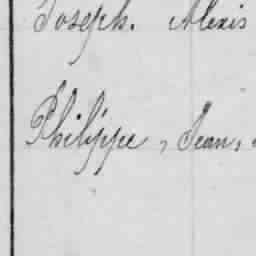 Joseph. Alexis
Philippe, Jean,